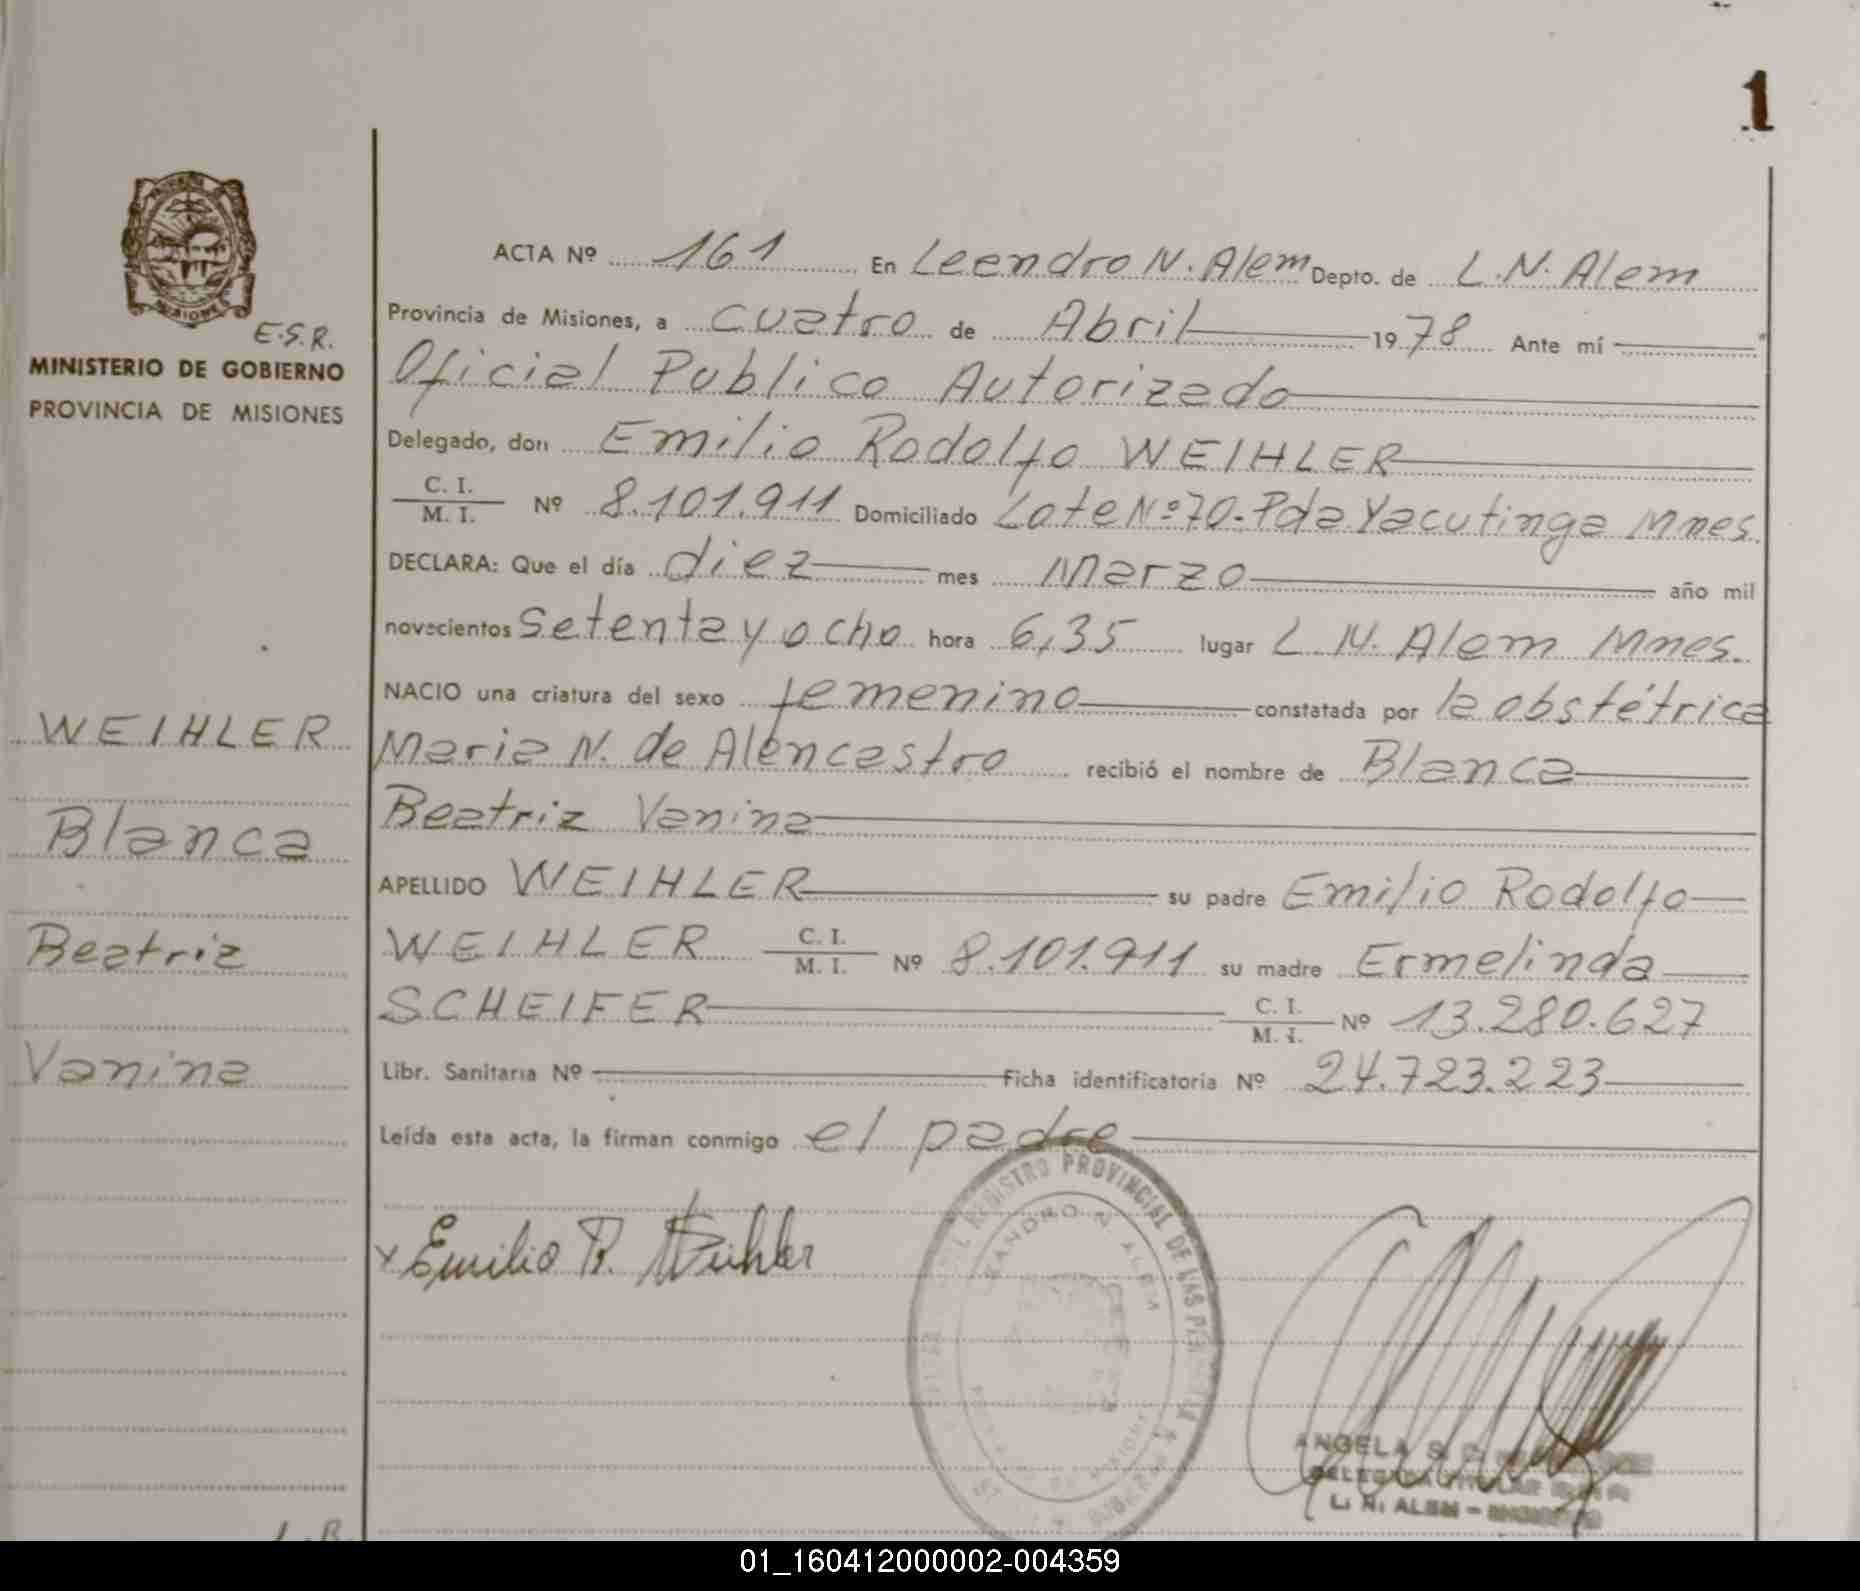 1
ACTA Nº 161 En Leandro N. Alem Depto. de L.N. Alem
Provincia de Misiones, a cuatro de Abril 1978 Ante mí
Oficial Publico Autorizado
Delegado, don Emilio Rodolfo WEIHLER
C. I.
M. I. Nº 8.101.911 Domiciliado Lote Nº 70.Pda Yacutinga Mnes.
DECLARA: Que el día diez mes Marzo año mil
novecientos Setenta y ocho hora 6,35 lugar L.N. Alem Mnes.
NACIO una criatura del sexo femenino constatada por la obstétrica
Maria N. de Alencastro recibió el nombre de Blanca
Beatriz Vanina
APELLIDO WEIHLER su padre Emilio Rodolfo
WEIHLER C. I.
M. I. Nº 8.101.911 su madre Ermelinda
SCHEIFER C. I.
M. I. Nº 13.280.627
Libr. Sanitaria Nº Ficha identificatoria Nº 24.723.223
Leída esta acta, la firman conmigo el padre
x Emilio R. Weihler
REGISTRO PROVINCIAL DE LAS PERSONAS
LEANDRO N. ALEM
ANGELA S.
L. N. ALEM -
MISIONES
E.S.R.
MINISTERIO DE GOBIERNO
PROVINCIA DE MISIONES
WEIHLER
Blanca
Beatriz
Vanina
01_160412000002-004359